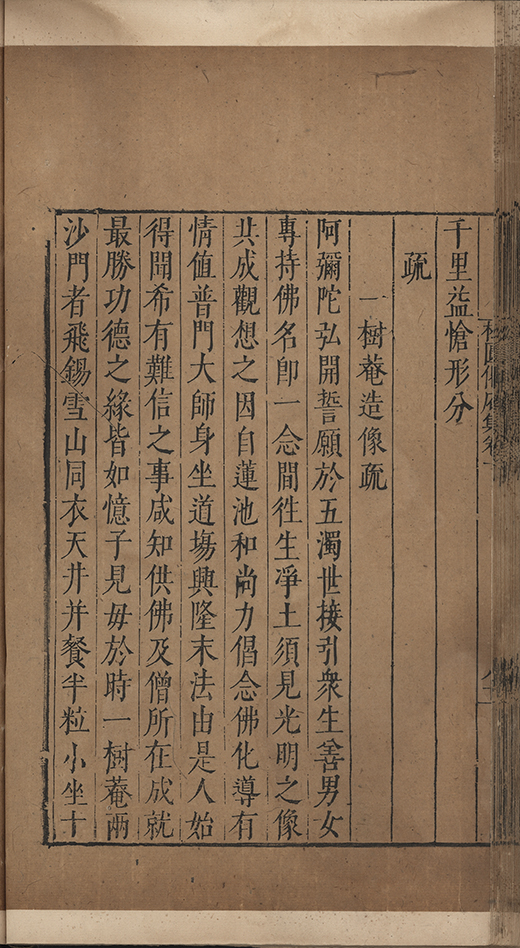 千里益愴形分
疏
一樹菴造像疏
阿彌陀弘開誓願於五濁世接引衆生善男女
專持佛名卽一念間徃生凈土須見光明之像
共成觀想之因自蓮池和尚力倡念佛化導有
情值普門大師身坐道塲興隆末法由是人始
得聞希有難信之事咸知供佛及僧所在成就
最勝功德之緣皆如憶子見毋於時一樹菴兩
沙門者飛錫雪山同衣天井并餐半粒小坐十